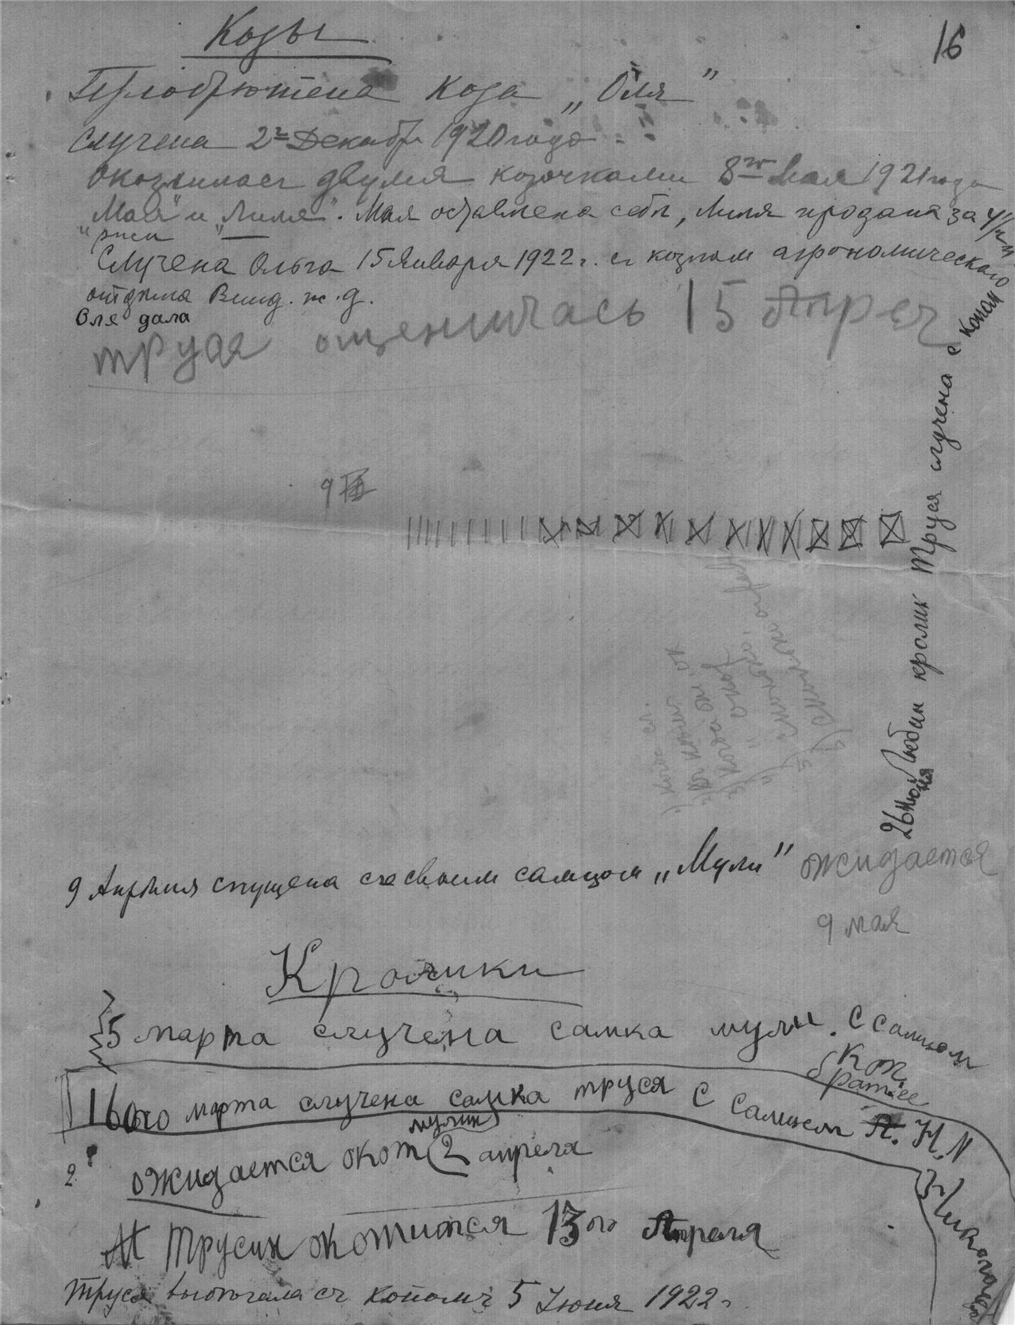 Козы
16
Приобрютена коза „Оля”
случена 2го Декабр. 1920 года
Окозлилась двумя козочками 8го Мая 1921 года
"Мая" и "Лиля". Мая оставлена себъ, Лиля продана за
ржи
Случена Ольга 15 Января 1922 г. съ козлом агрономического
отдъла Винд. ж. д.
Оля дала
труся ощенилась 15 Апреч
9
26 Июня Любин кролик Труся случена с Копом
9 Апръля спущена со своим самцом „Мули” ожидается
9 мая
Кролики
5 марта случена самка мули. с самцом
Коп. братце
16ого марта случена самка труся с самцом Н. Н,
Николаем
2
ожидается окот мулин 2 апреля
Трусин окотится 13ого Апреля
Труся съ Копомъ 5 Июня 1922 г.